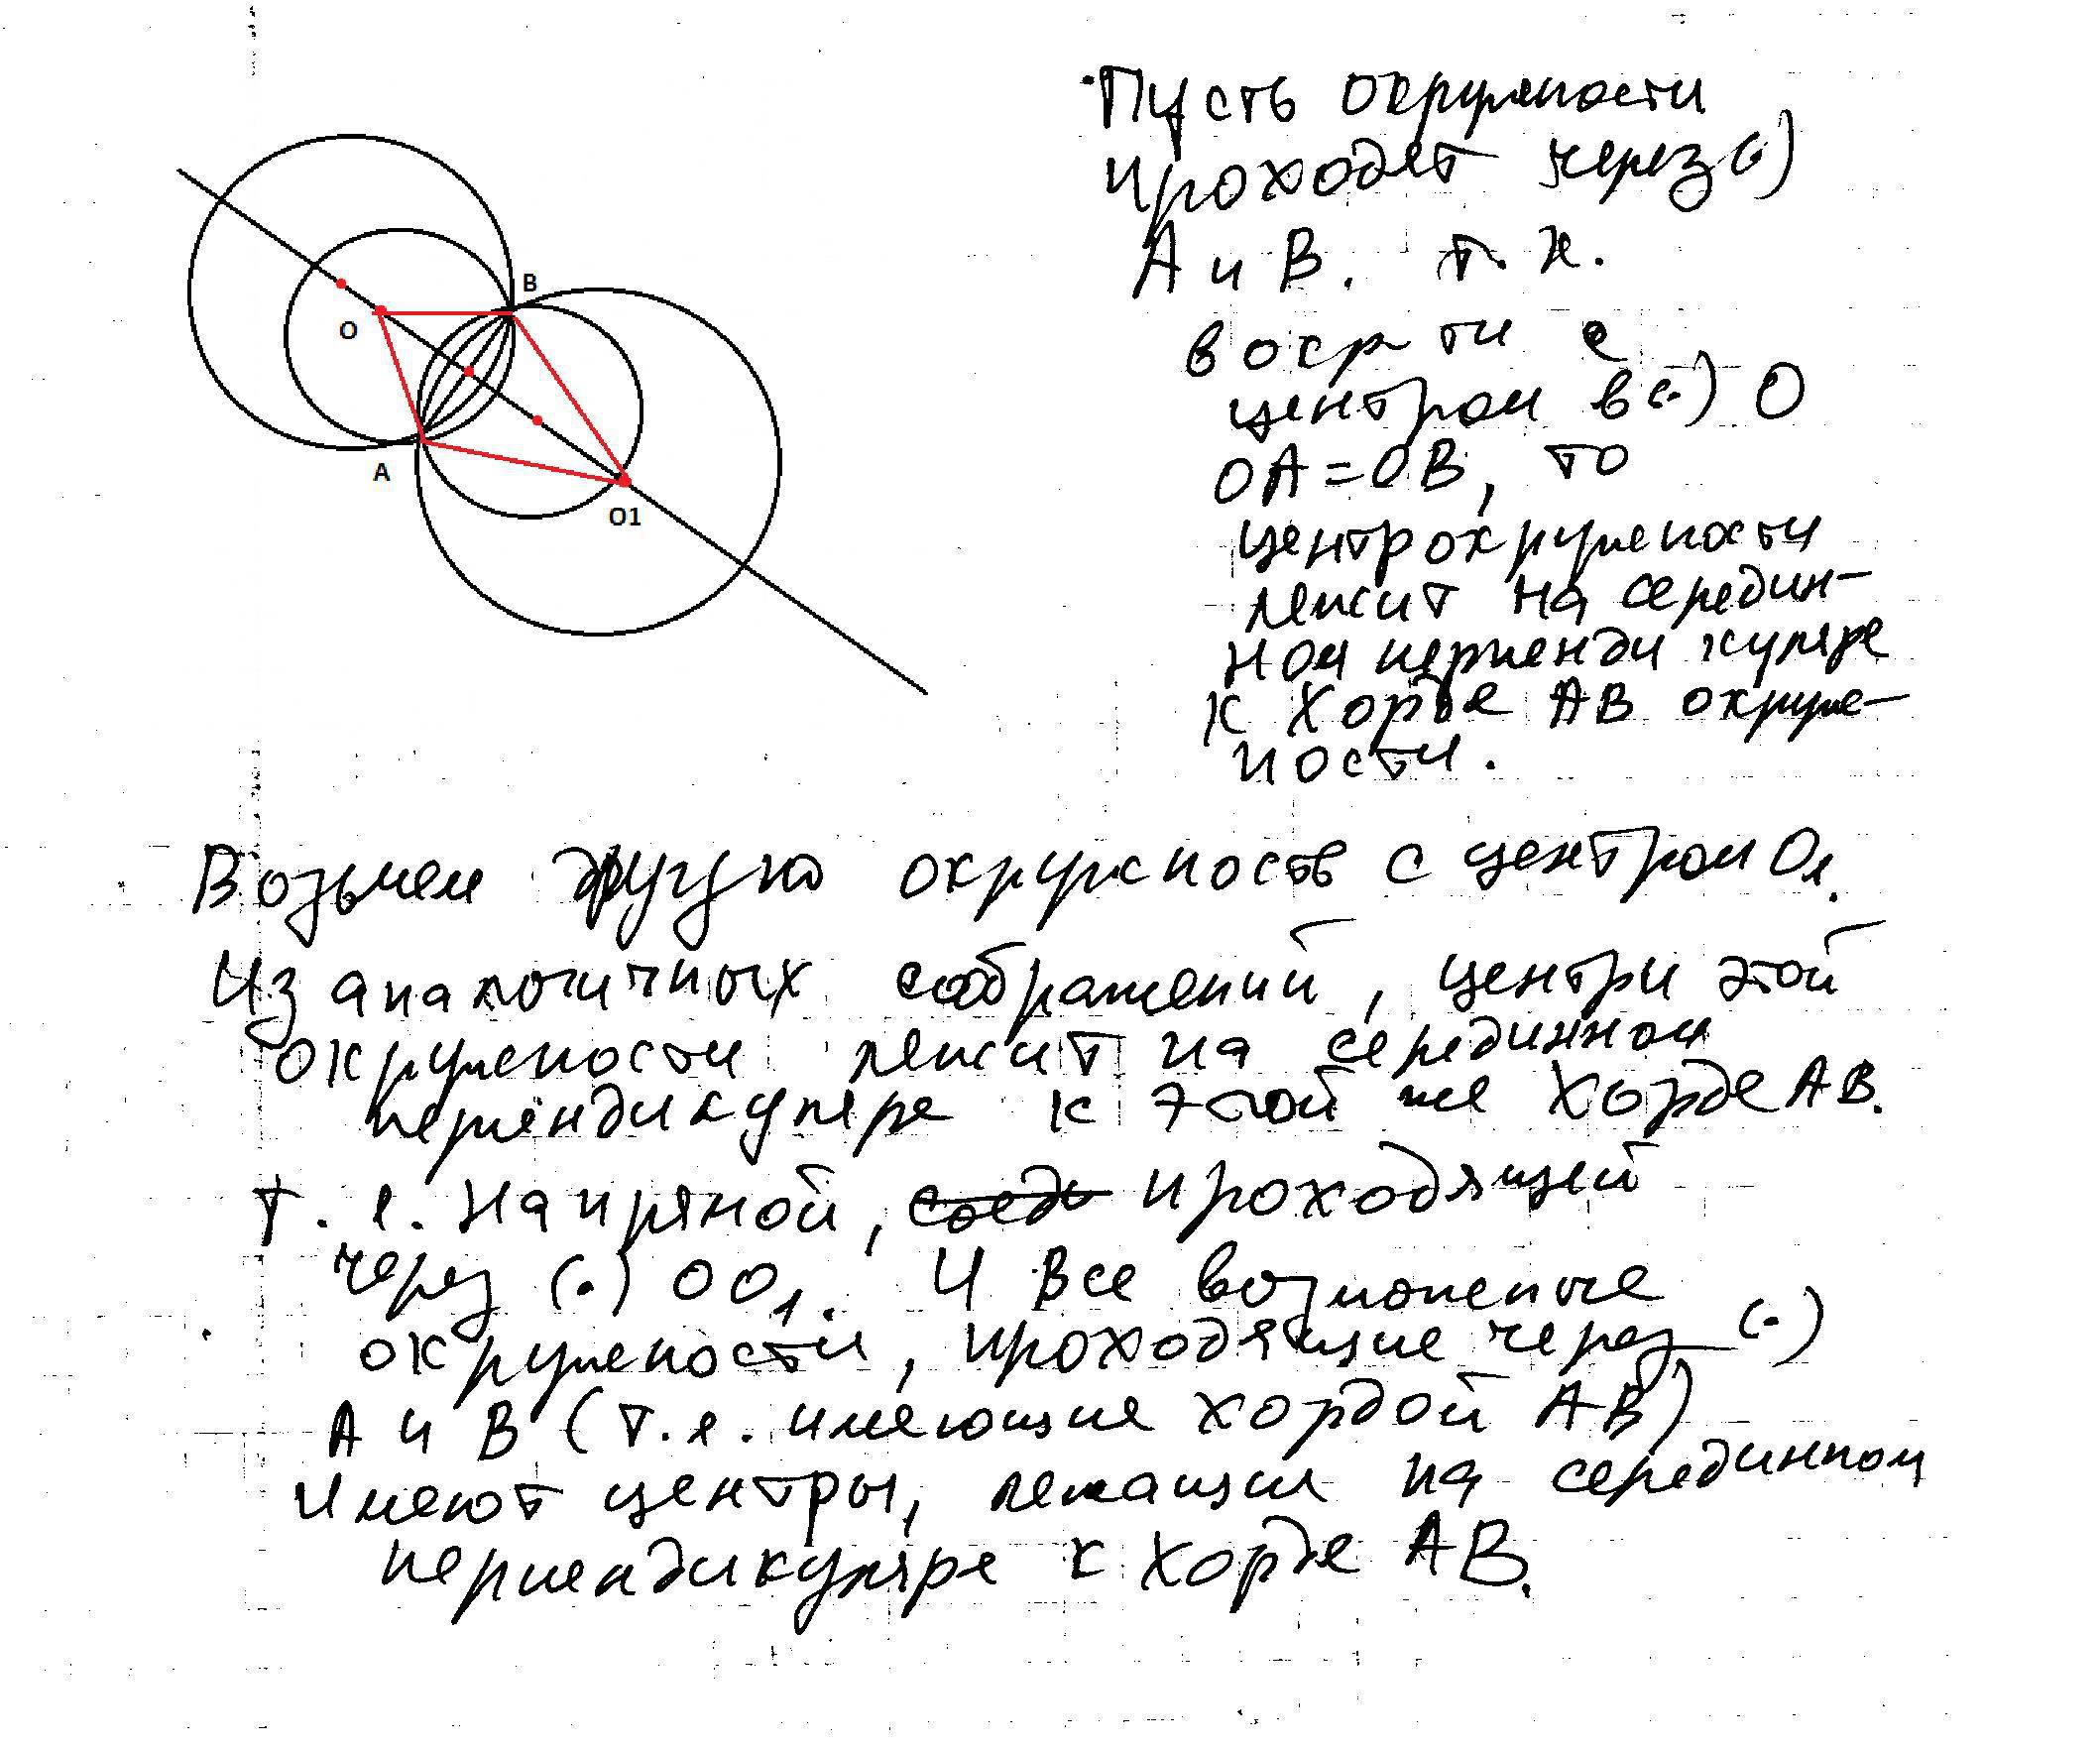 B
O
A
O1
Пусть окружности
проходят через (·)
A и B. т.к.
в окр-ти с
центром в (·) O
OA = OB, то
центр окружности
лежит на середин-
ном перпендикуляре
к хорде AB окруж-
ности.
Возьмем другую окружность с центром O₁.
Из аналогичных соображений, центр этой
окружности лежит на серединном
перпендикуляре к этой же хорде AB.
т.е. на прямой, проходящей
через (·) OO₁. И все возможные
окружности, проходящие через (·)
A и B (т.е. имеющие хордой AB)
имеют центры, лежащие на серединном
перпендикуляре к хорде AB.